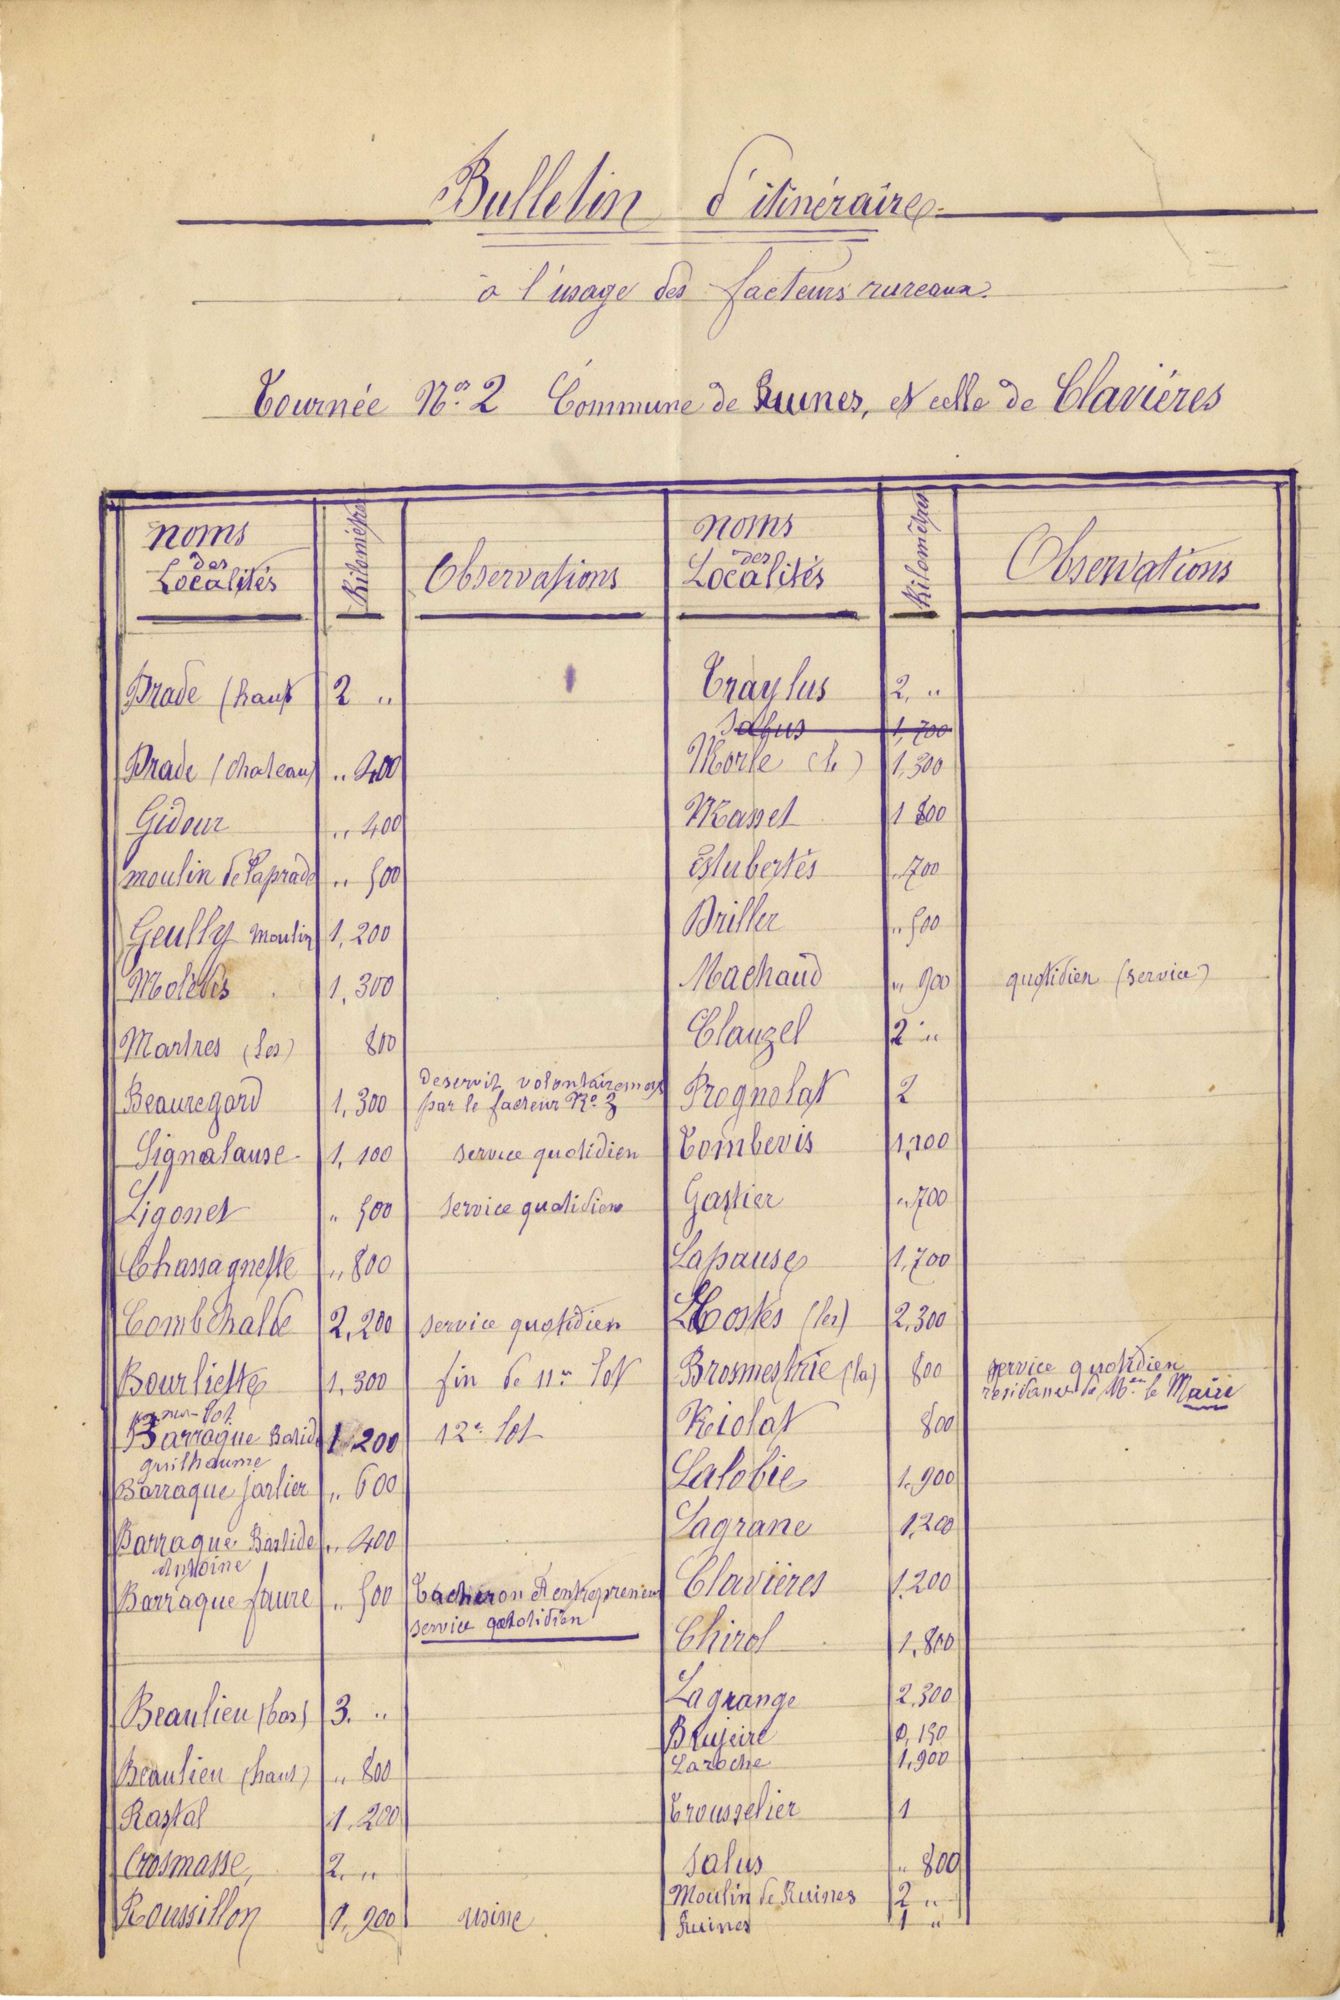 Bulletin d'itinéraire
à l'usage des facteurs rureaux.
Tournée No. 2 Commune de Ruines, et celle de Claviéres
noms des Localités Kilomètres Observations
Prade (haut 2 "
Prade (chateau) " 400
Gidour " 400
moulin de Laprade " 500
Geully moulin 1,200
Molèdes 1,300
Martres (les) 800
Beauregard 1,300 deservit volontairement
par le facteur No 3
Signalause 1,100 service quotidien
Ligonet " 500 service quotidien
Chassagnette " 800
Combchalde 2,200 service quotidien
Bourliette 1,300 fin de 11me lot
Barraque Bastide 1,200 12e lot
guilhaume
Barraque Jarlier " 600
Barraque Bastide " 400
Antoine
Barraque faure " 500 Tacheron Et entrepreneur
service quotidien
Beaulieu (bas) 3. "
Beaulieu (haut) " 800
Rastal 1.200
Crosmasse, 2. "
Roussillon 1,200 usine
noms des Localités Kilomètres Observations
Traylus 2, "
Salus 1,700
Morle (le) 1,300
Masset 1 800
Estubertés " 700
Driller " 500
Machaud " 900 quotidien (service)
Clauzel 2 "
Prognolat 2
Combevis 1,100
Gastier " 700
Lapause 1,700
Costes (les) 2,300
Brosmestrie (la) 800 service quotidien
résidance de Mr le Maire
Riolat 800
Lalobie 1,900
Lagrane 1,200
Clavières 1.200
Chirol 1,800
Lagrange 2,300
Brujeire 0,150
Laroche 1,900
Trousselier 1
Salus " 800
Moulin de Ruines 2 "
Ruines 1 "